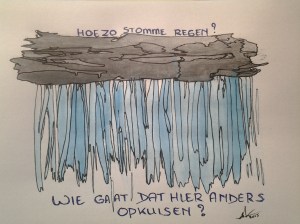 HOEZO STOMME REGEN?
WIE GAAT DAT HIER ANDERS
OPKUISEN?